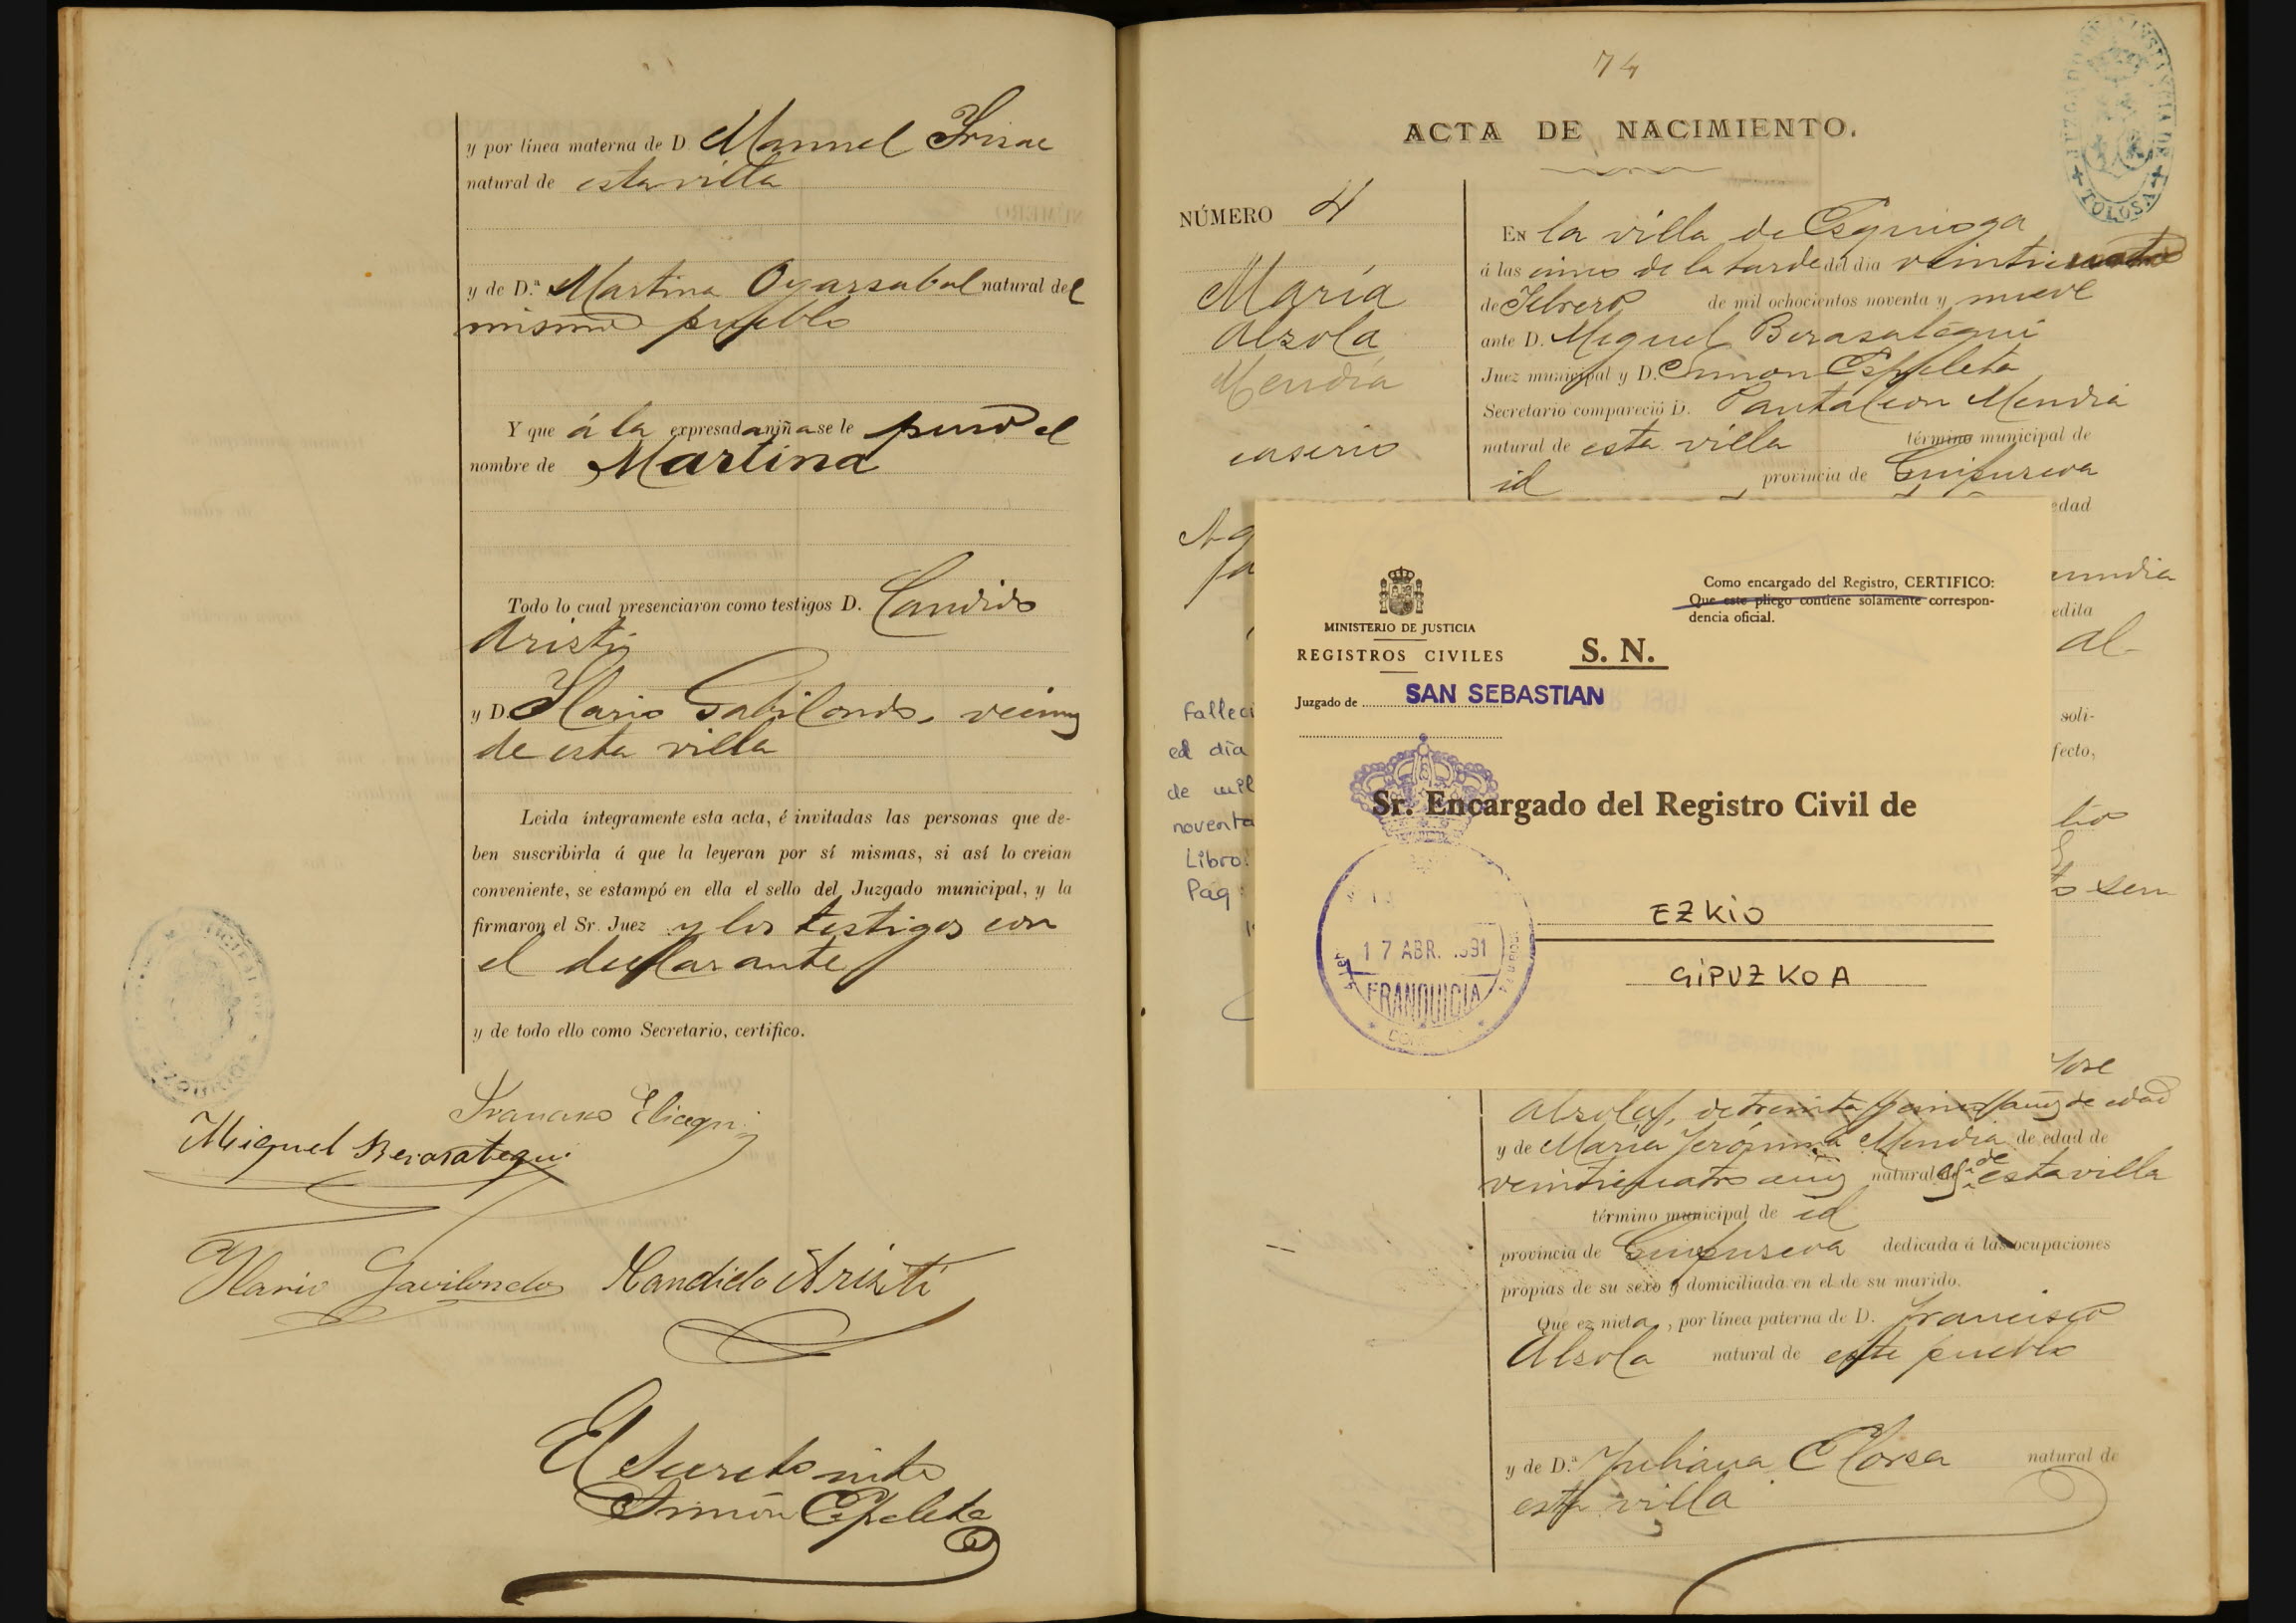 y por línea materna de D. Manuel Irizar
natural de esta villa
y de D.ª Martina Oyarzabal natural del
mismo pueblo
Y que á la expresada niña se le puso el
nombre de Martina
Todo lo cual presenciaron como testigos D. Candido
Aristi
y D. Ilario Gabilondo, vecinos
de esta villa
Leida íntegramente esta acta, é invitadas las personas que de-
ben suscribirla á que la leyeran por sí mismas, si así lo creian
conveniente, se estampó en ella el sello del Juzgado municipal, y la
firmaron el Sr. Juez y los testigos con
el declarante
y de todo ello como Secretario, certifico.
Francisco Elicegui
Miguel Berasategui
Ilario Gavilondo Kandido Aristi
El Secretario
Simón Espeleta
74
ACTA DE NACIMIENTO.
TOLOSA
NÚMERO 4
María
Alzola
Mendía
caserio
En la villa de Ezquioga
á las cinco de la tarde del dia
de Febrero de mil ochocientos noventa y nueve
ante D. Miguel Berasategui
Juez municipal y D. Simon Espeleta
Secretario compareció D. Pantaleon Mendia
natural de esta villa término municipal de
id provincia de Guipuzcoa
edad
edita
al-
soli-
fecto,
Falleci
el día
de mil
noventa
Libro:
Pag:
MINISTERIO DE JUSTICIA
REGISTROS CIVILES
Como encargado del Registro, CERTIFICO:
Que este pliego contiene solamente correspon-
dencia oficial.
S. N.
Juzgado de SAN SEBASTIAN
Sr. Encargado del Registro Civil de
EZKIO
GIPUZKOA
17 ABR. 1991
FRANQUICIA
José
Alzola, de treinta y cinco años de edad
y de María Jerónima Mendia de edad de
veinticuatro años natural de esta villa
término municipal de id
provincia de Guipuzcoa dedicada á las ocupaciones
propias de su sexo y domiciliada en el de su marido.
Que es nieta, por línea paterna de D. Francisco
Alzola natural de este pueblo
y de D.ª Juliana Elorza natural de
esta villa